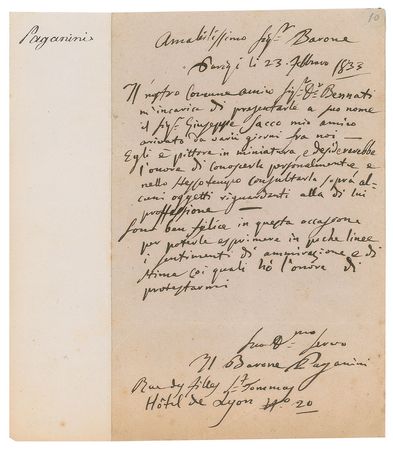 10
Paganini
Amabilissimo Sigr. Barone
Parigi li 23 Febbraro 1833
Il nostro Comune amico Sigr. Dr. Bennati
m'incarica di presentarle a suo nome
il Sigr. Giuseppe Sacco mio amico
arrivato da varii giorni fra noi —
Egli è pittore in miniatura e desidererebbe
l'onore di conoscerla personalmente e
nello stesso tempo consultarla sopra al-
cuni oggetti riguardanti alla di lui
professione —
Sono ben felice in questa occasione
per poterle esprimere in poche linee
i sentimenti di ammirazione e di
stima coi quali hò l'onore di
protestarmi
Suo D.mo servo
Il Barone Paganini
Rue des filles St. Tommas
Hôtel de Lyon No. 20